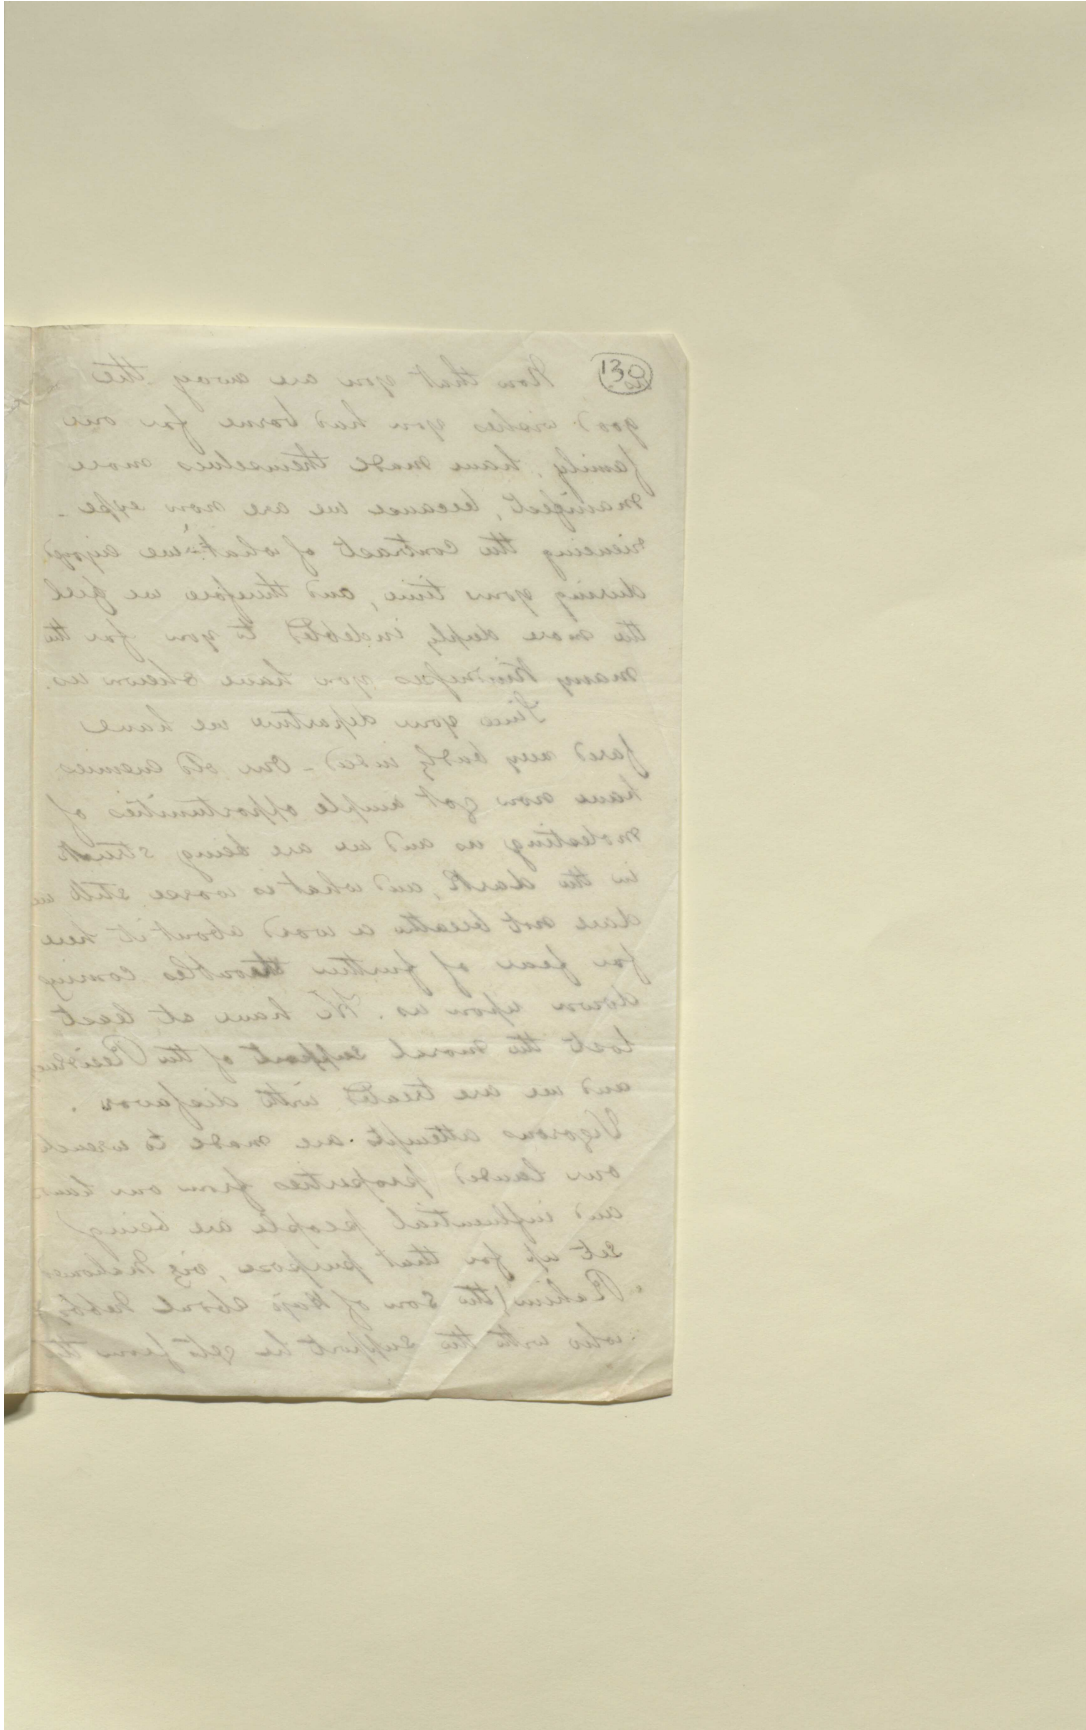 130
Now that you are away the
good wishes you had borne for our
family, have made themselves more
manifest, because we are now expe-
riencing the contrast of what we enjoyed
during your time, and therefore we feel
the more deeply indebted to you for the
many kindnesses you have shewn us.
Since your departure we have
fared very badly indeed - Our old enemies
have now got ample opportunities of
molesting us and we are being struck
in the dark, and what is worse still we
dare not breathe a word about it here
for fear of further troubles coming
down upon us. We have at least
lost the moral support of the Residency
and we are treated with disfavor.
Vigorous attempts are made to wrench
our landed properties from our hands
and influential people are being
set up for that purpose, viz
Rahim (the son of Haji Abdul Nebbi)
who with the support he gets from the